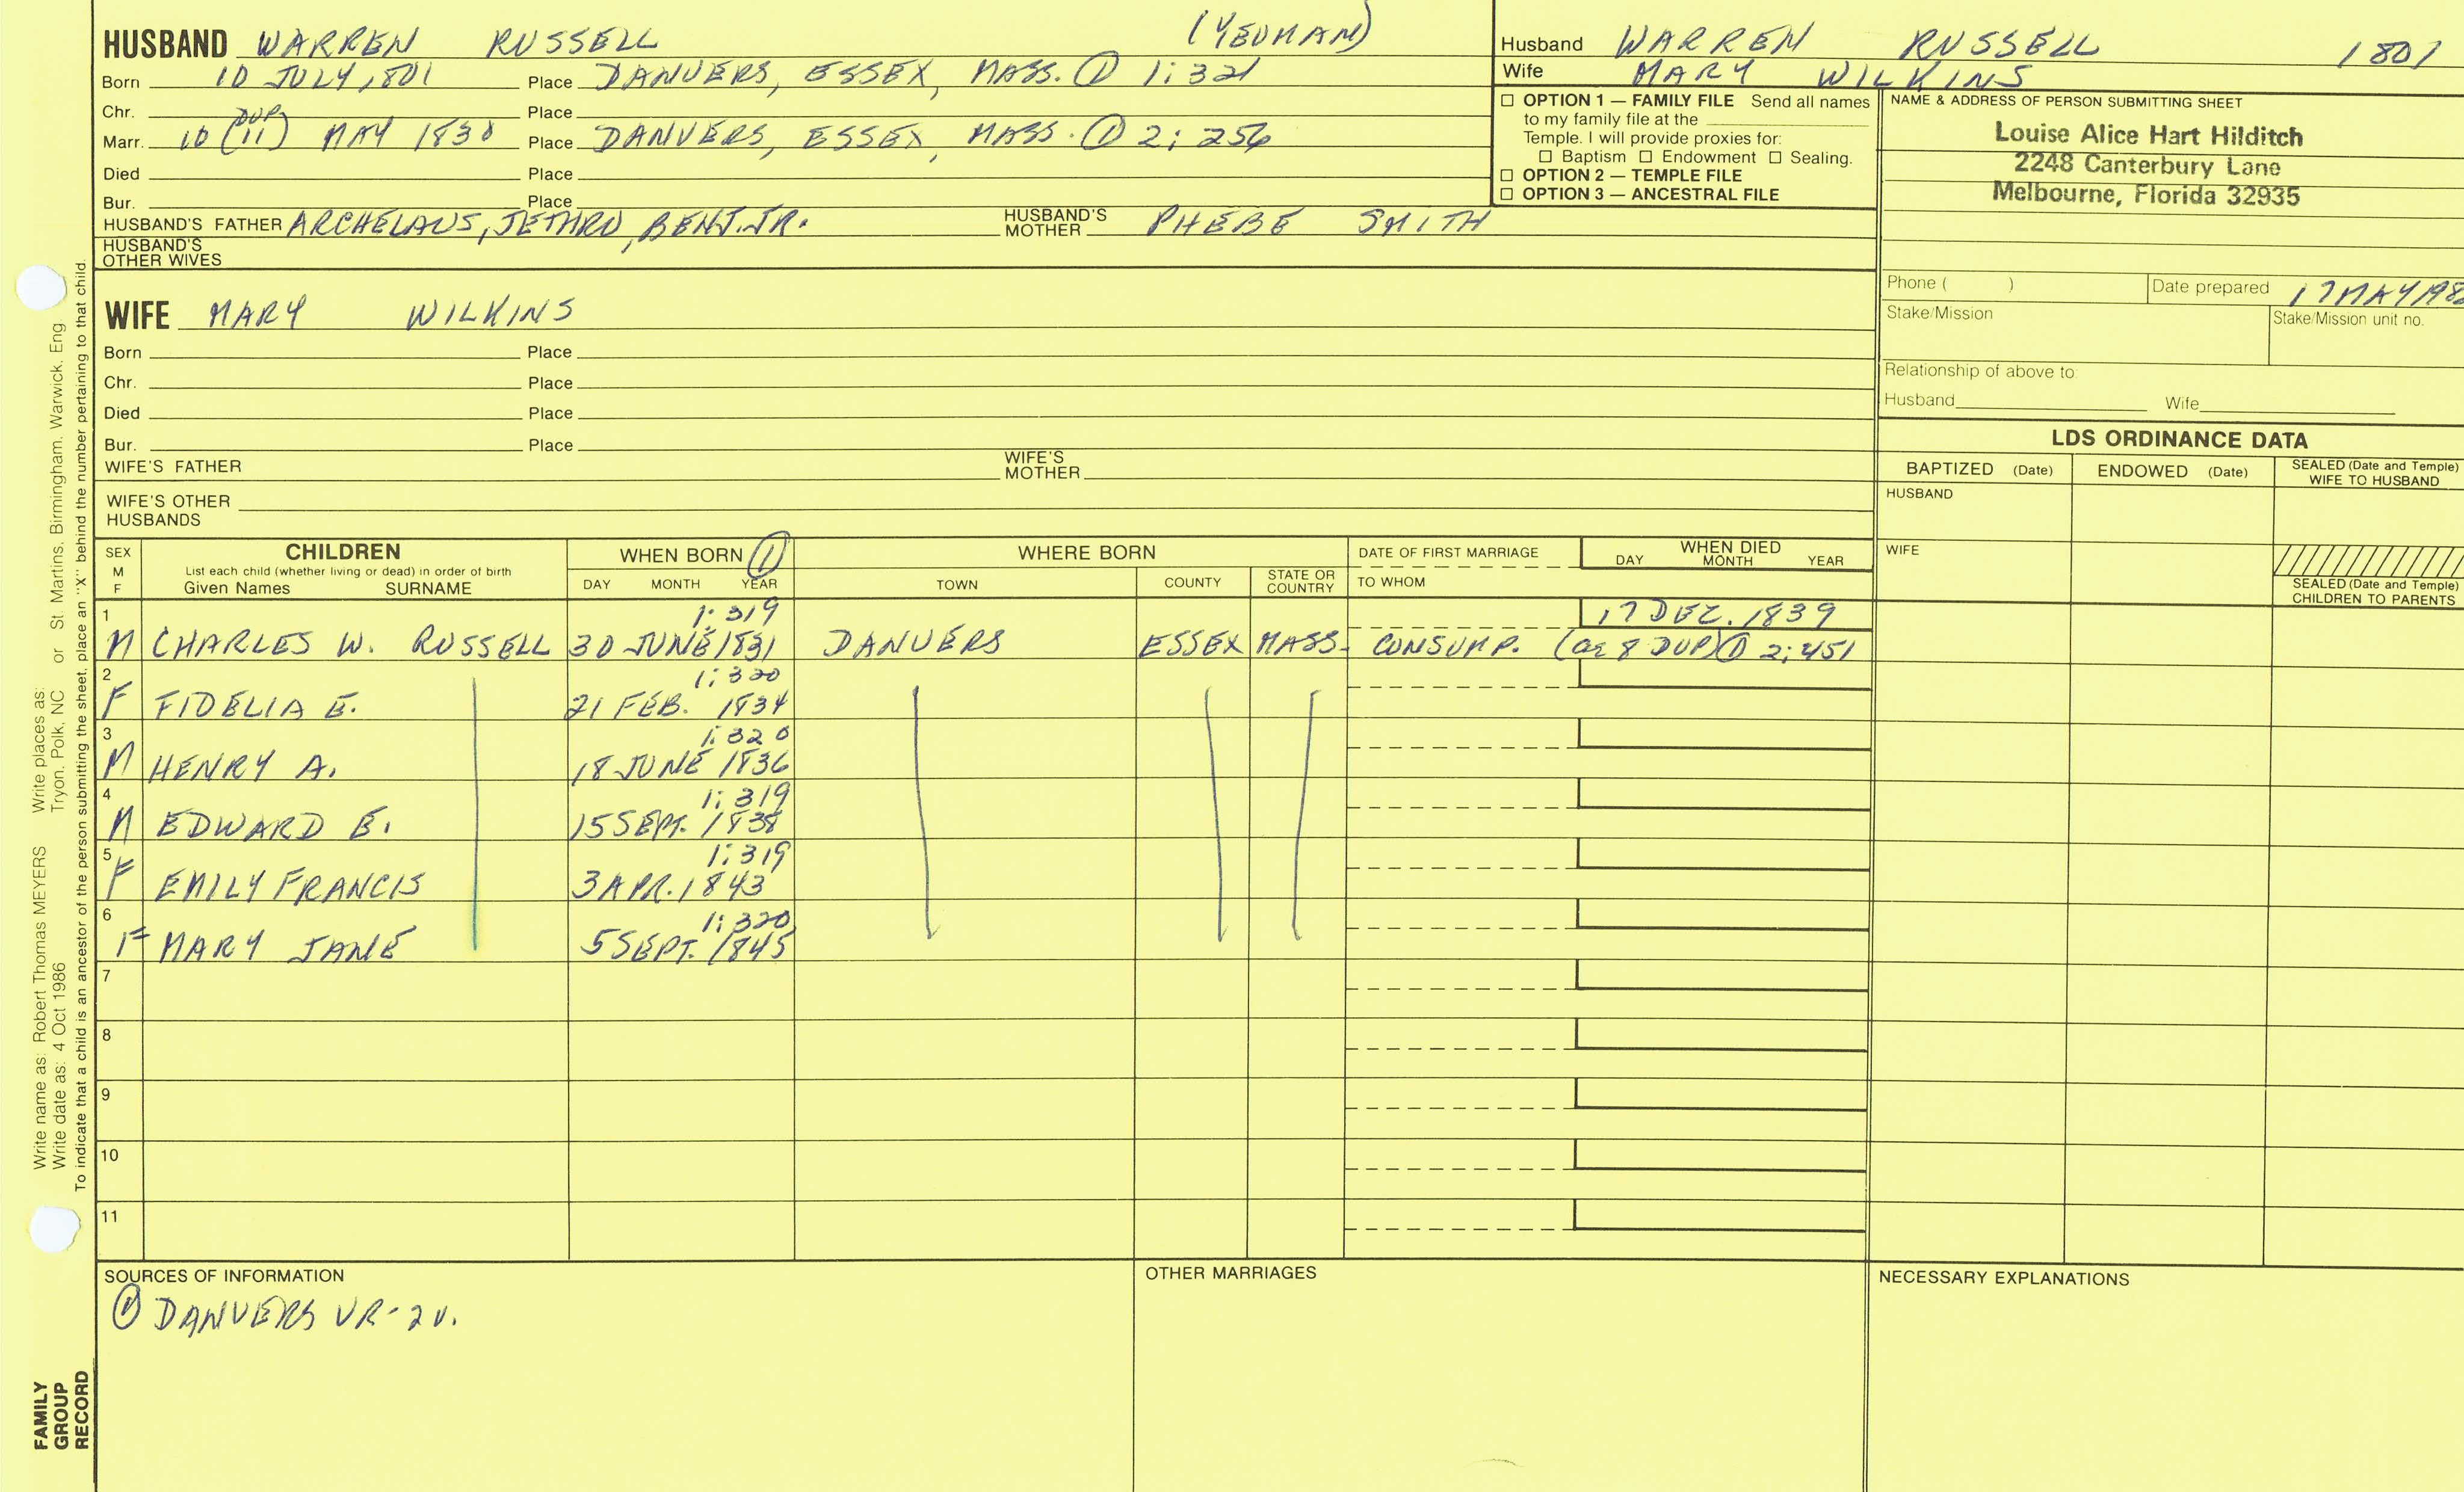 HUSBAND WARREN RUSSELL (YEOMAN)
Born 10 JULY 1801 Place DANVERS, ESSEX, MASS. ① 1:321
Chr. Place
Marr. 10 (11) DUP MAY 1830 Place DANVERS, ESSEX, MASS. ① 2:256
Died Place
Bur. Place
HUSBAND'S FATHER ARCHELAUS, JETHRO, BENJ. JR. HUSBAND'S MOTHER PHEBE SMITH
HUSBAND'S OTHER WIVES
WIFE MARY WILKINS
Born Place
Chr. Place
Died Place
Bur. Place
WIFE'S FATHER WIFE'S MOTHER
WIFE'S OTHER HUSBANDS
Husband WARREN RUSSELL 1801
Wife MARY WILKINS
☐ OPTION 1 — FAMILY FILE Send all names
to my family file at the
Temple. I will provide proxies for:
☐ Baptism ☐ Endowment ☐ Sealing.
☐ OPTION 2 — TEMPLE FILE
☐ OPTION 3 — ANCESTRAL FILE
NAME & ADDRESS OF PERSON SUBMITTING SHEET
Louise Alice Hart Hilditch
2248 Canterbury Lane
Melbourne, Florida 32935
Phone ( ) Date prepared 17 MAY 198
Stake/Mission Stake/Mission unit no.
Relationship of above to:
Husband Wife
LDS ORDINANCE DATA
BAPTIZED (Date) ENDOWED (Date) SEALED (Date and Temple) WIFE TO HUSBAND
HUSBAND
WIFE
SEALED (Date and Temple)
CHILDREN TO PARENTS
SEX M F CHILDREN WHEN BORN ① WHERE BORN DATE OF FIRST MARRIAGE WHEN DIED
List each child (whether living or dead) in order of birth DAY MONTH YEAR
Given Names SURNAME DAY MONTH YEAR TOWN COUNTY STATE OR COUNTRY TO WHOM
1 1:319 17 DEC. 1839
M CHARLES W. RUSSELL 30 JUNE 1831 DANVERS ESSEX MASS. CONSUMP. (ae 8 DUP) ① 2:451
2 1:320
F FIDELIA E. 21 FEB. 1834
3 1:320
M HENRY A. 18 JUNE 1836
4 1:319
M EDWARD E. 15 SEPT. 1838
5 1:319
F EMILY FRANCIS 3 APR. 1843
6 1:320
F MARY JANE 5 SEPT. 1845
7
8
9
10
11
SOURCES OF INFORMATION OTHER MARRIAGES NECESSARY EXPLANATIONS
① DANVERS VR-2V.
Write name as: Robert Thomas MEYERS Write places as: Tryon, Polk, NC or St. Martins, Birmingham, Warwick, Eng.
Write date as: 4 Oct 1986
To indicate that a child is an ancestor of the person submitting the sheet, place an "X" behind the number pertaining to that child.
FAMILY
GROUP
RECORD